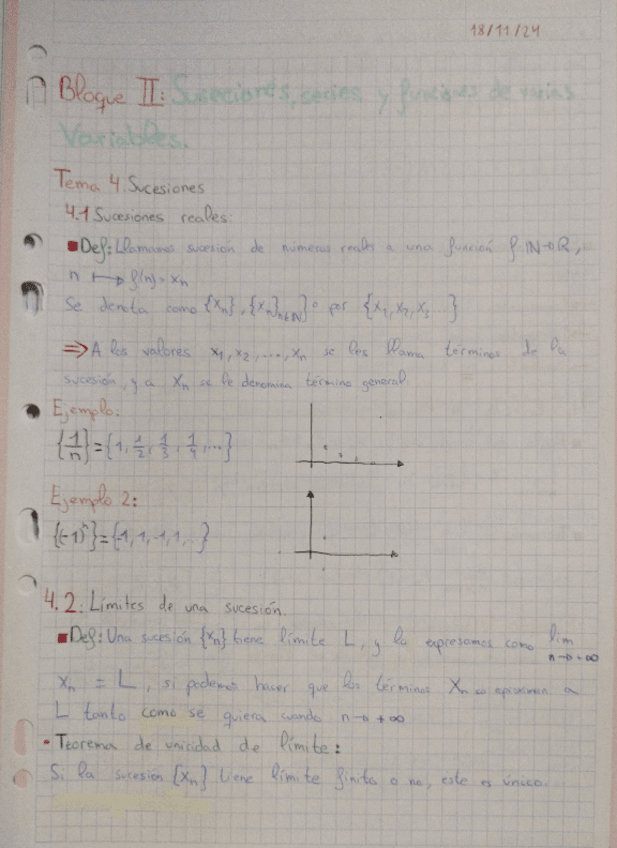 18/11/24
Bloque II: Sucesiones, series y funciones de varias
Variables.
Tema 4. Sucesiones
4.1 Sucesiones reales:
■ Def: Llamamos sucesión de números reales a una función f: ℕ→ℝ,
n ↦ f(n) = xₙ
Se denota como {xₙ}, {xₙ}ₙ∈ℕ o por {x₁, x₂, x₃ ...}
⇒ A los valores x₁, x₂, ..., xₙ se les llama términos de la
sucesión, y a xₙ se le denomina término general.
Ejemplo:
{1/n} = {1, 1/2, 1/3, 1/4, ...}
Ejemplo 2:
{(-1)ⁿ} = {-1, 1, -1, 1, ...}
4.2: Límites de una sucesión.
■ Def: Una sucesión {xₙ} tiene límite L, y lo expresamos como lim n→+∞
xₙ = L, si podemos hacer que los términos xₙ se aproximen a
L tanto como se quiera cuando n→+∞
• Teorema de unicidad de límite:
Si la sucesión {xₙ} tiene límite finito o no, este es único.